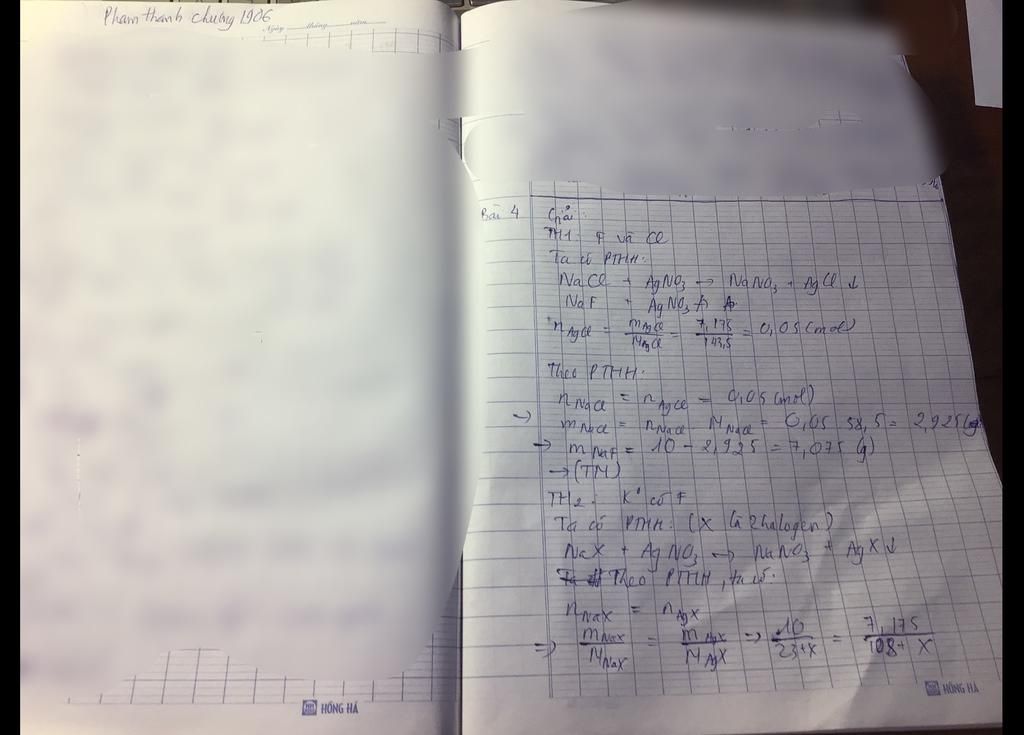 Phạm thanh chương 1906
Ngày tháng năm
Bài 4
Giải:
TH1: F và Cl
Ta có PTHH:
NaCl + AgNO3 → NaNO3 + AgCl ↓
NaF + AgNO3 ↛
nAgCl = mAgCl/MAgCl = 7,175/143,5 = 0,05 (mol)
Theo PTHH:
nNaCl = nAgCl = 0,05 (mol)
→ mNaCl = nNaCl . MNaCl = 0,05 . 58,5 = 2,925 (g)
→ mNaF = 10 - 2,925 = 7,075 (g)
→ (TM)
TH2: K° có F
Ta có PTHH: (X là 2 halogen)
NaX + AgNO3 → NaNO3 + AgX ↓
Theo PTHH, ta có:
nNaX = nAgX
=> mNaX/MNaX = mAgX/MAgX => 10/23+X = 7,175/108+X
HỒNG HÀ
HỒNG HÀ